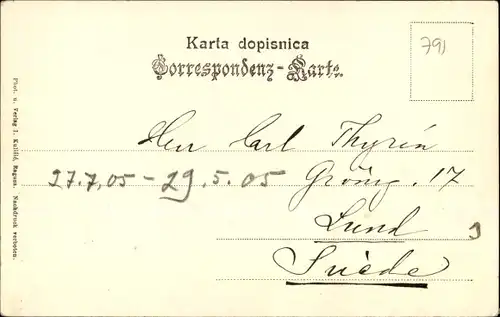 Karta dopisnica
Correspondenz-Karte.
791
Herr Carl Thyrén
27.7.05 - 29.5.05
Gröng. 17
Lund
Suède
Phot. u. Verlag J. Kulišić, Ragusa. Nachdruck verboten.